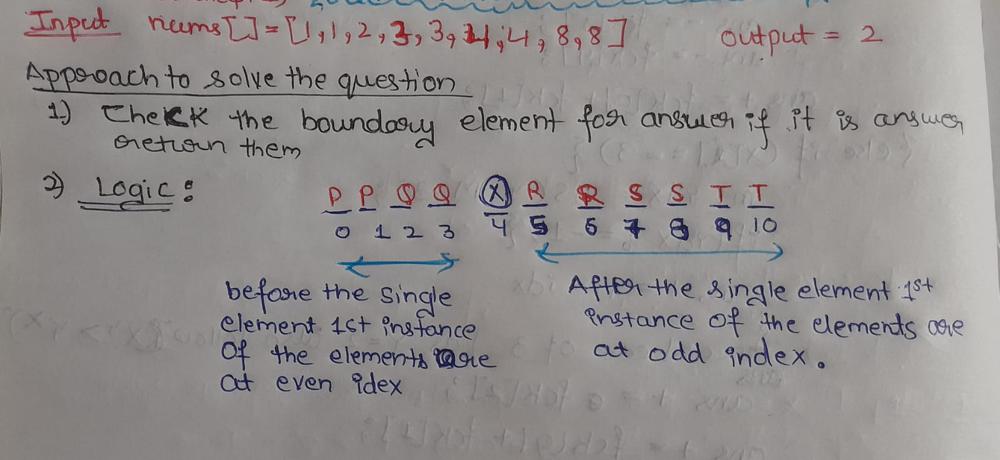 Input nums[]=[1,1,2,3,3,4,4,8,8] output = 2
Approach to solve the question
1) Check the boundary element for answer if it is answer
return them
2) Logic: P P Q Q X R R S S T T
0 1 2 3 4 5 6 7 8 9 10
before the single
element 1st instance
of the elements are
at even idex
After the single element 1st
instance of the elements are
at odd index.